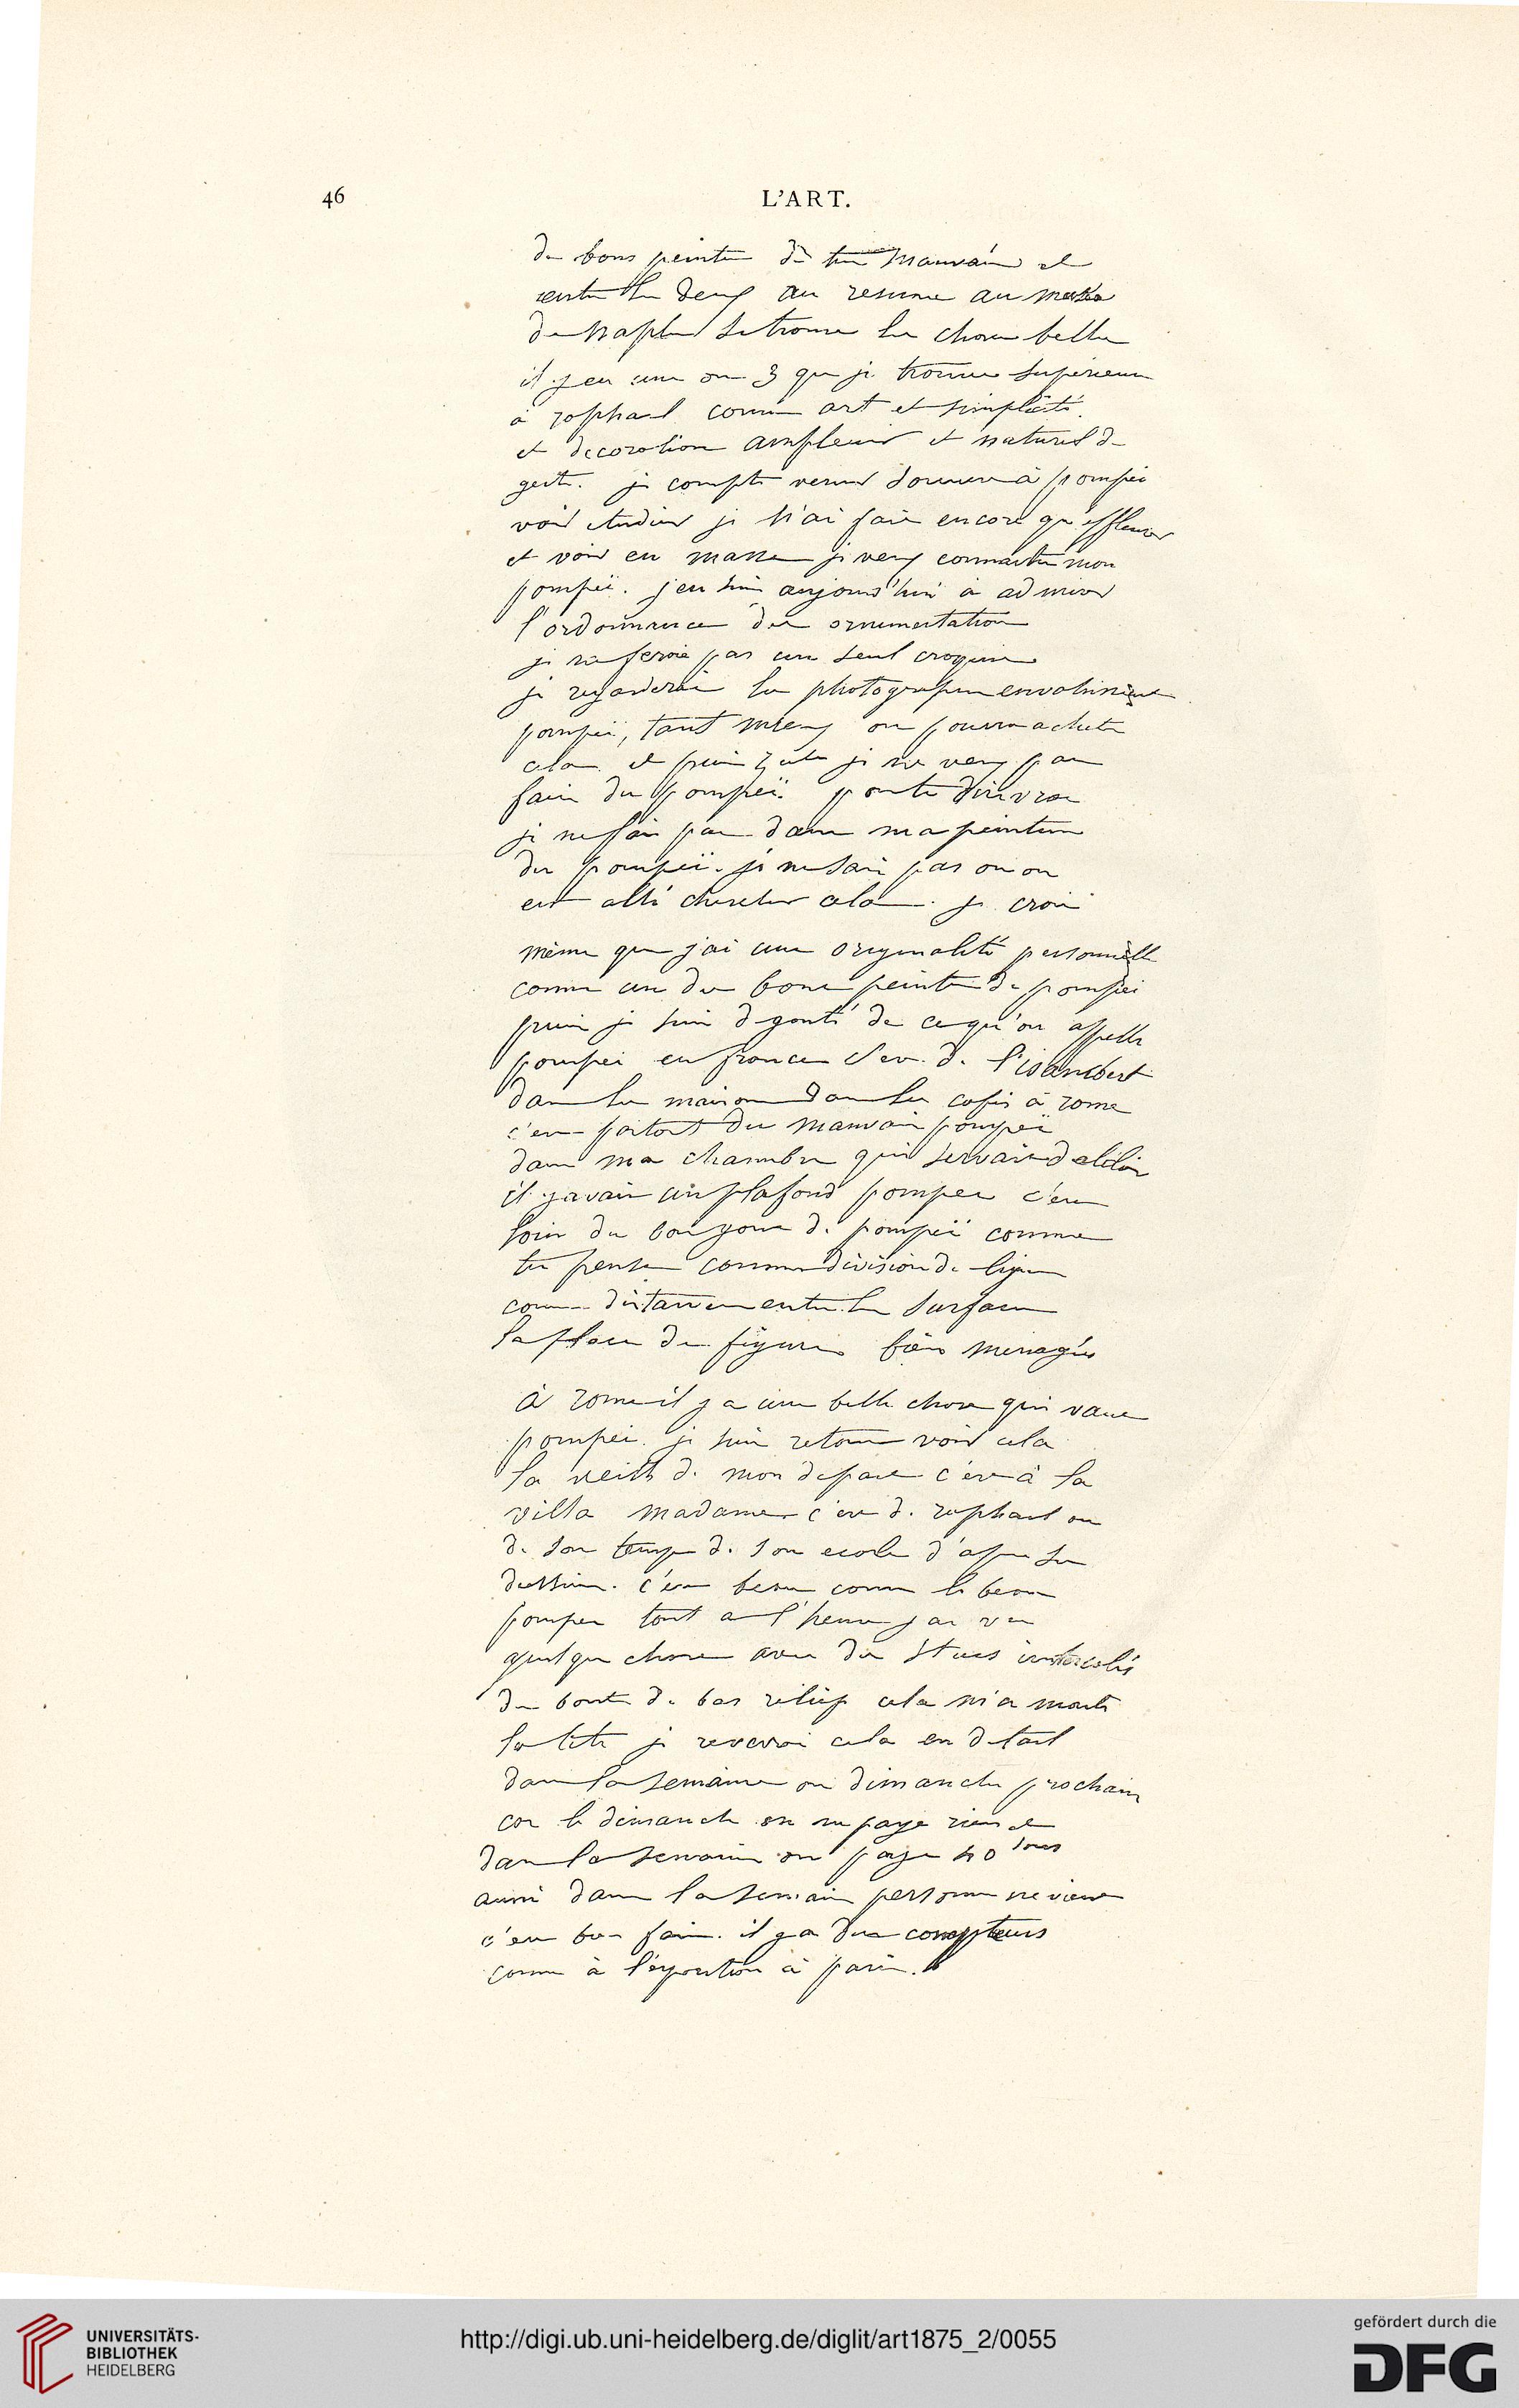 46
L'ART.
de bons peintres de tres mauvais et
entre les deux au resume au musée
de naples se trouve les choses belles
il y en a une ou 3 que je trouve superieures
à raphael comme art et simplicité
et decoration ampleur et naturel de
geste. je compte venir à pompei
voir etudier je n'ai fait encore qu'effleurer
et voir en masse je veux connaitre mon
pompeï. j'en suis aujourd'hui à admirer
l'ordonnance des ornementation
je ne ferais pas un seul croquis
je regarderai les photograph
pompeï, tant mieux on pourra acheter
cela et puis zut je ne veux pas
faire du pompeï. pour te dire vrai
je ne fais pas dans ma peinture
du pompeï. je ne sais pas ou on
est allé chercher cela. je crois
même que j'ai une originalité personnelle
comme un des bons peintres de pompei
puis je suis degouté de ce qu'on appelle
pompei en france c'est de l'isambert
dans les maisons dans les cafés à rome
c'est partout du mauvais pompeï
dans ma chambre qui servait d'atelier
il y avait un plafond pompei c'est
loin du bon gout de pompeï comme
tu penses comme division de lignes
comme distances entre les surfaces
la place des figures bien menagées
à rome il y a une belle chose qui vaut
pompei. je suis retourné voir cela
la veille de mon depart c'est à la
villa madame c'est de raphael ou
de son temps de son ecole d'apres ses
dessins. c'est beau comme le beau
pompei tout a l'heure j'ai vu
quelque chose avec des stucs intercalés
des bouts de bas relief cela m'a monté
la tete je reverrai cela en detail
dans la semaine ou dimanche prochain
car le dimanche on ne paye rien et
dans la semaine on paye 40 sous
aussi dans la semaine personne ne vient
c'est bien fait. il y a des compteurs
comme à l'exposition à paris.
UNIVERSITÄTS-
BIBLIOTHEK
HEIDELBERG
http://digi.ub.uni-heidelberg.de/diglit/art1875_2/0055
gefördert durch die
DFG